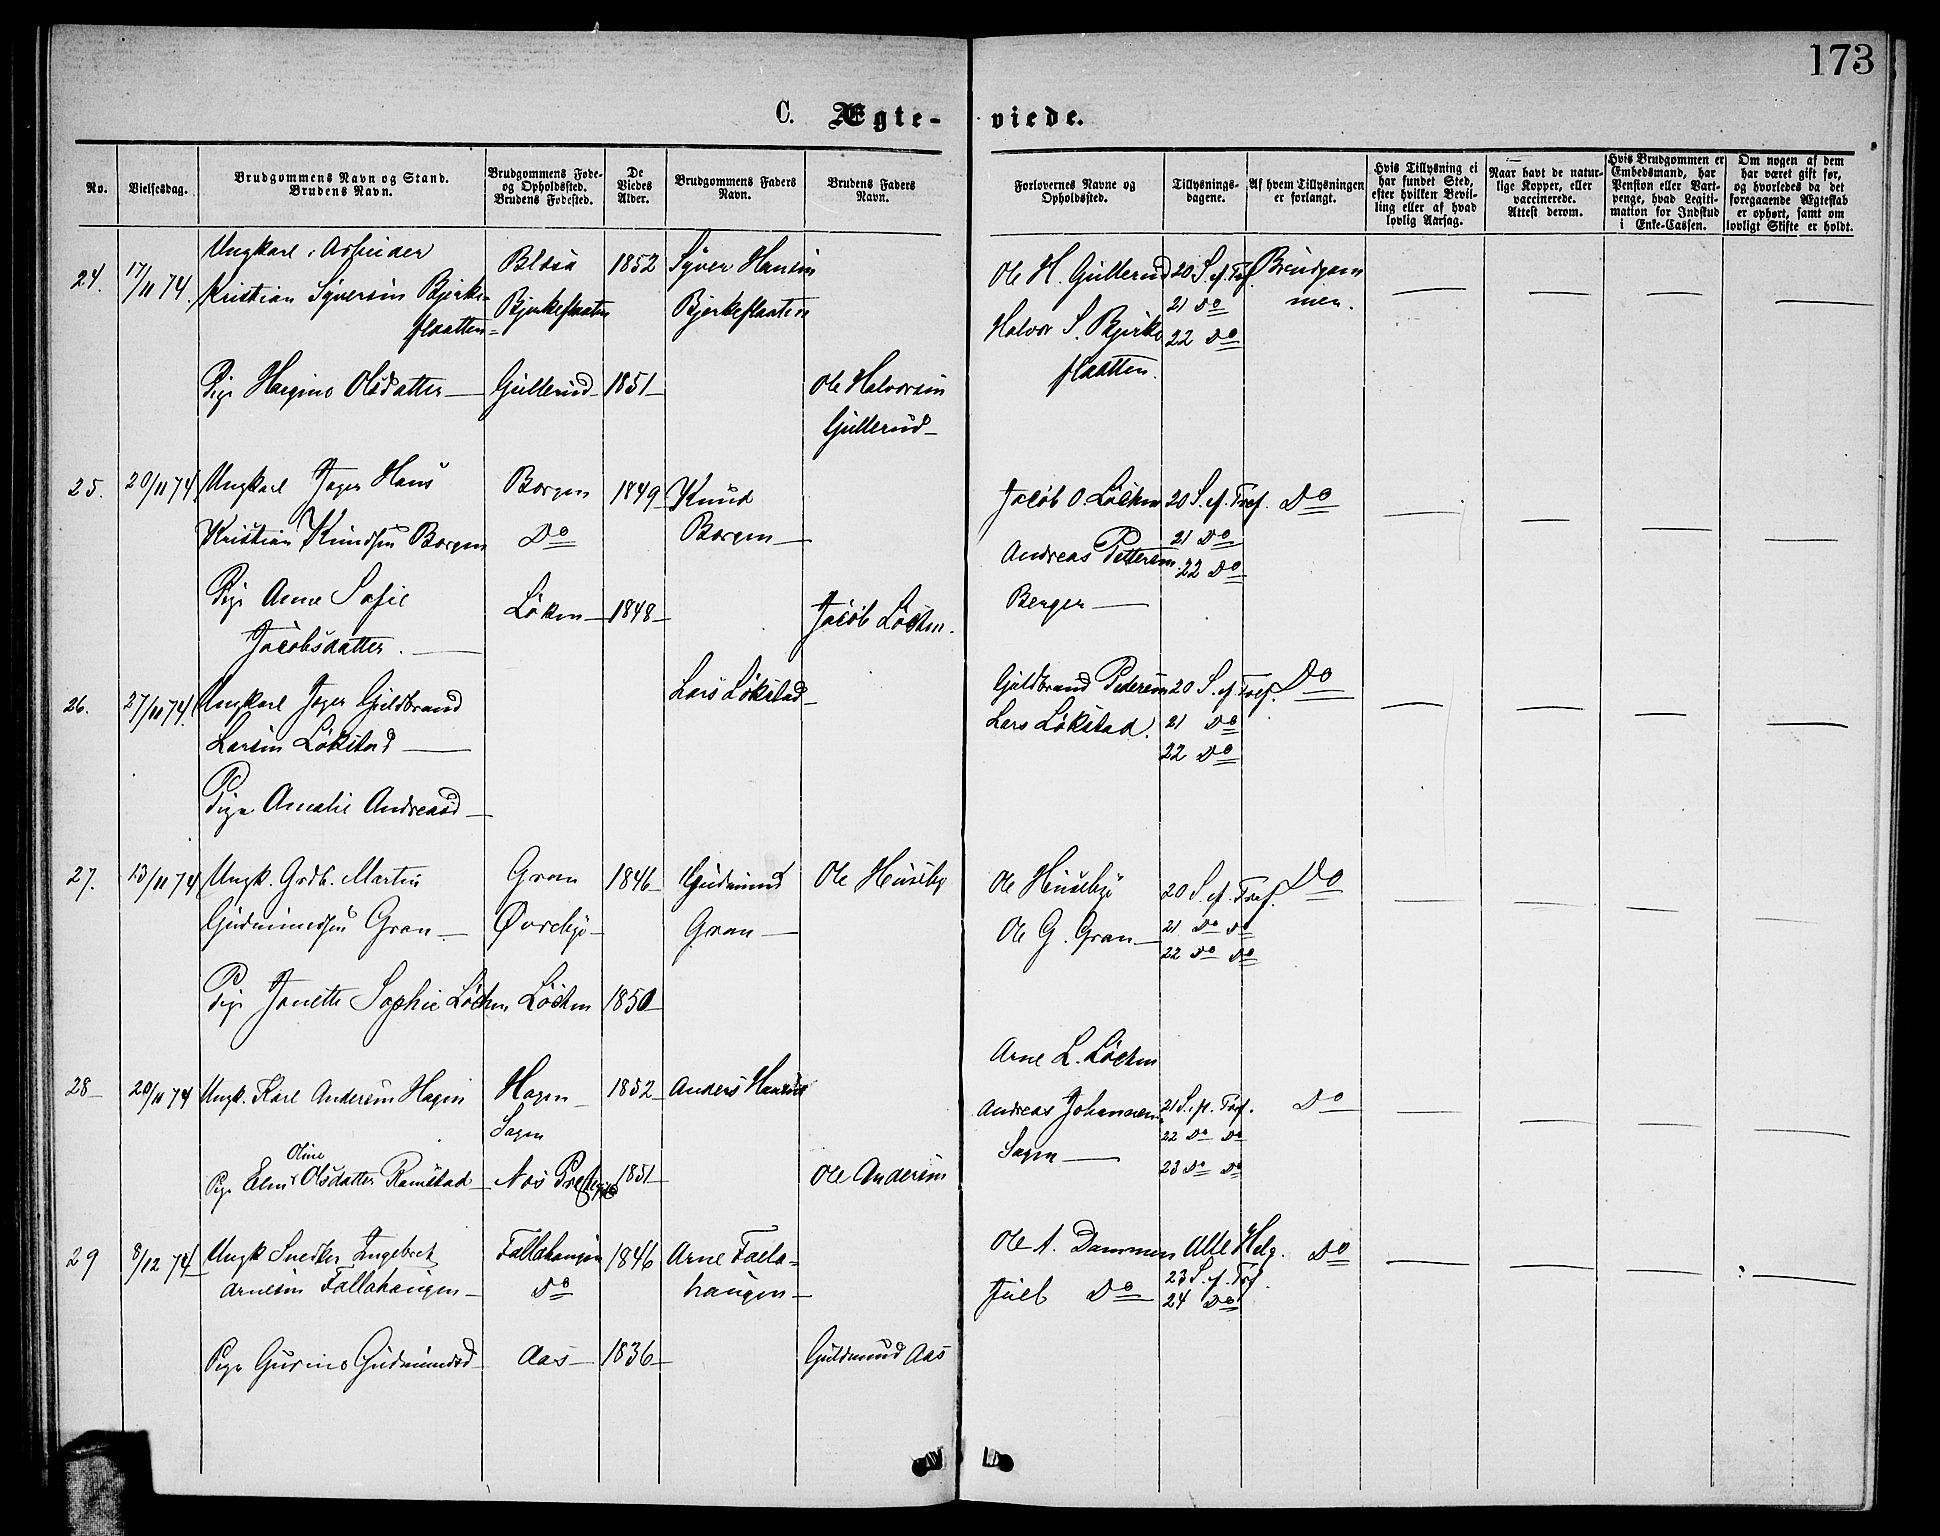 173
C. Ægte- viede.
No.
Vielsesdag.
Brudgommens Navn og Stand.
Brudens Navn.
Brudgommens Føde-
og Opholdssted.
Brudens Fødested.
De
Viedes
Alder.
Brudgommens Faders
Navn.
Brudens Faders
Navn.
Forlovernes Navne og
Opholdssted.
Tillysnings-
dagene.
Af hvem Tillysningen
er forlangt.
Hvis Tillysning ei
har fundet Sted,
efter hvilken Bevil-
ling eller af hvad
lovlig Aarsag.
Naar havt de natur-
lige Kopper, eller
vaccinerede.
Attest derom.
Hvis Brudgommen er
Embedsmand, har
Pension eller Vart-
penge, hvad Legiti-
mation for Indskud
i Enke-Cassen.
Om nogen af dem
har været gift før,
og hvorledes da det
foregaaende Ægteskab
er ophørt, samt om
lovligt Skifte er holdt.
24. 17/11 74. Ungkarl, Arbeider
Kristian Syversen Bjerke-
flaatten
Bjerkeflaaten
1852 Syver Hansen
Bjerkeflaaten
Ole H. Gullerud 20 S. ef. Tref. Brudgom
21 Do men.
Halvor S. Bjerke 22 Do
flaatten.
Pige Olsdatter Gullerud 1851 Ole Halvorsen
Gullerud
25. 20/11 74 Ungkarl Jager Hans Borgen 1849 Knud
Kristian Knudsen Borgen Do Borgen
Jacob O. Løchen 20 S. ef. Tref. Do
21 Do
Andreas Pettersen 22 Do
Berger
Pige Anne Sofie Løken 1848 Jacob Løchen.
Jacobsdatter.
26. 27/11 74. Ungkarl Jager Guldbrand Lars Løkstad
Larsen Løkstad
Guldbrand Pedersen 20 S. ef. Tref. Do
Lars Løkstad. 21 Do
22 Do
Pige Amalie Andreasd
27. 13/11 74 Ungk. Grdb. Martin Gran 1846 Gudmund Ole Huseby
Gudmundsen Gran Øvreby Gran
Ole Huseby 20 S. ef. Tref. Do
Ole G. Gran 21 Do Do
22 Do Do
Pige Janette Sophie Løchen Løchen 1850
Arne L. Løchen
28 20/11 74 Ungk. Karl Andersen Hagen Hagen 1852 Anders Hansen
Sagen
Andreas Johannesen 21 S. p. Tref. Do
22 Do Do
Sagen 23 Do Do
Oline
Pige Olsdatter Ramstad Næs 1851 Ole Andersen
29 8/12 74 Ungk Snedker Ingebret Fallahaugen 1846 Arne Falla-
Arnesen Fallahaugen Do haugen
Ole A. Dammen Alle Helg. Do
23 S. ef. Tref.
Juel Do 24 Do
Pige Gurine Gudmundsd Aas 1836 Guldmund Aas